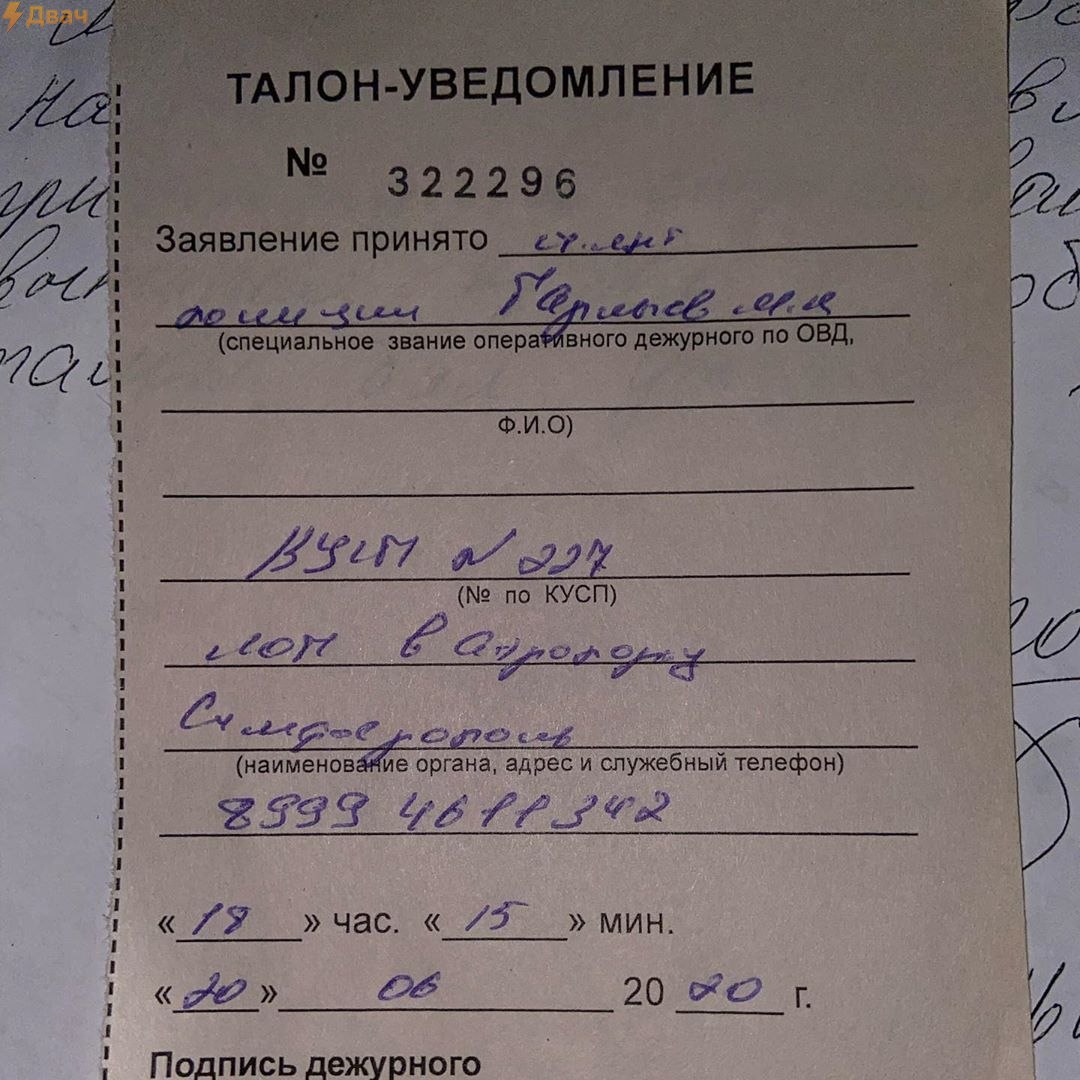 Двач
ТАЛОН-УВЕДОМЛЕНИЕ
№ 322296
Заявление принято ст. лнт
полиции М.М
(специальное звание оперативного дежурного по ОВД,
Ф.И.О)
КУСП N 227
(№ по КУСП)
ЛОП в аэропорту
Симферополь
(наименование органа, адрес и служебный телефон)
8999 4611342
« 18 » час. « 15 » мин.
« 20 » 06 20 20 г.
Подпись дежурного